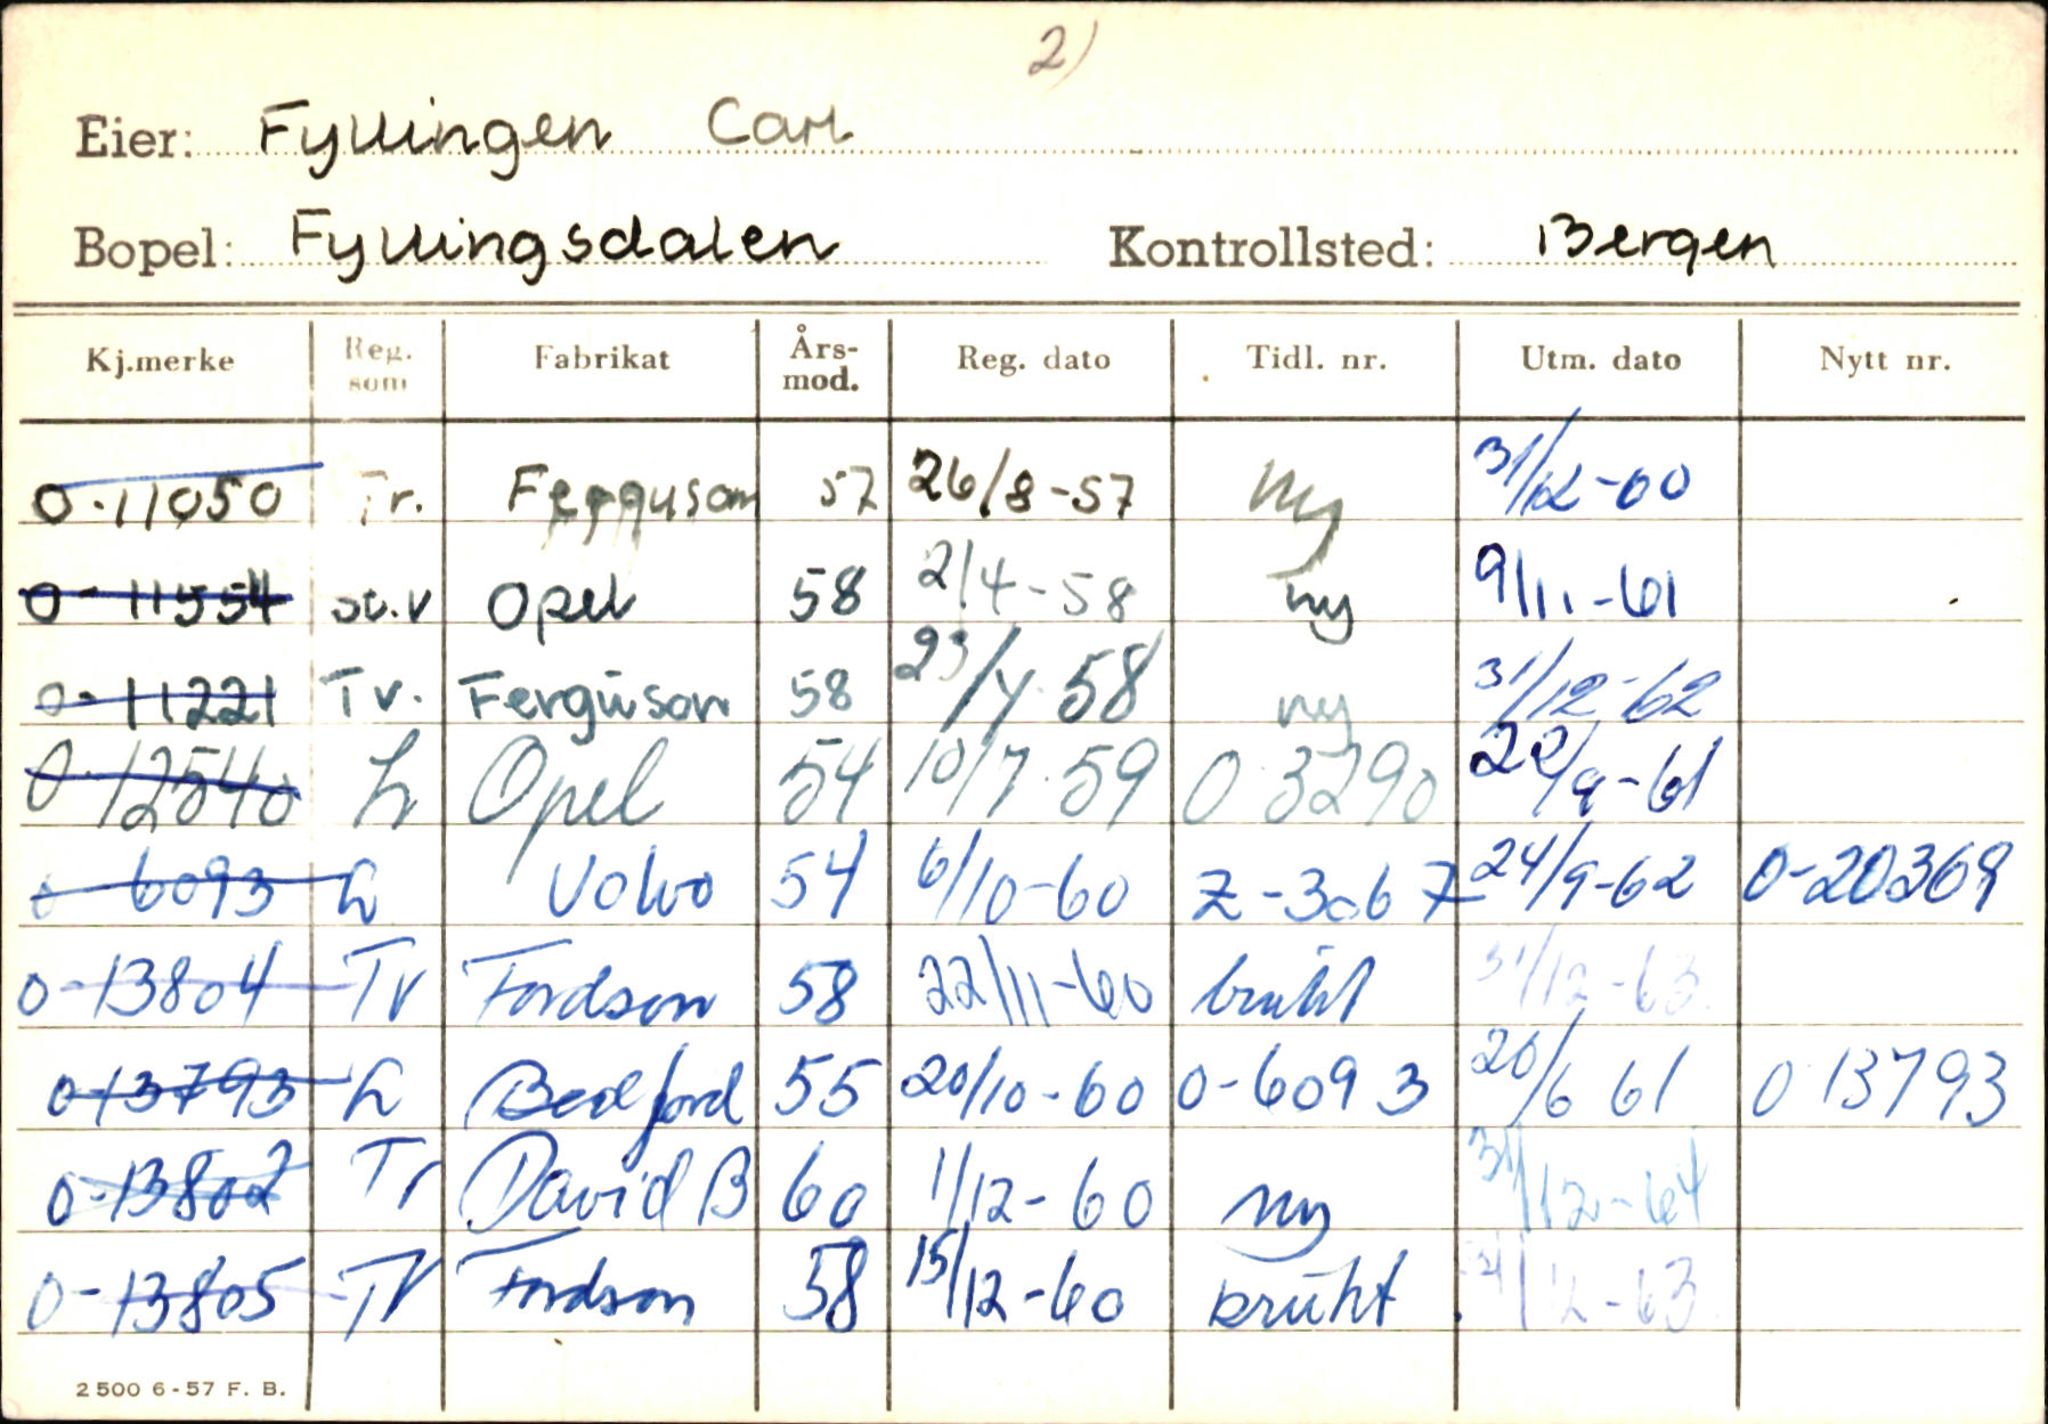 2)
Eier: Fyllingen Carl
Bopel: Fyllingsdalen Kontrollsted: Bergen
Kj.merke Reg. som Fabrikat Års-mod. Reg. dato Tidl. nr. Utm. dato Nytt nr.
O-11050 Tr. Ferguson 57 26/8-57 ny 31/12-60
O-11554 st.v Opel 58 2/4-58 ny 9/11-61
O-11221 Tr. Ferguson 58 23/4-58 ny 31/12-62
O-12540 L Opel 54 10/7-59 O-3290 20/9-61
O-6093 L Volvo 54 6/10-60 Z-3067 24/9-62 O-20369
O-13804 Tr Fordson 58 22/11-60 brukt 31/12-63
O-13793 L Bedford 55 20/10-60 O-6093 20/6 61 O-13793
O-13802 Tr David B 60 1/12-60 ny 31/12-64
O-13805 Tr Fordson 58 15/12-60 brukt 31/12-63
2500 6-57 F. B.